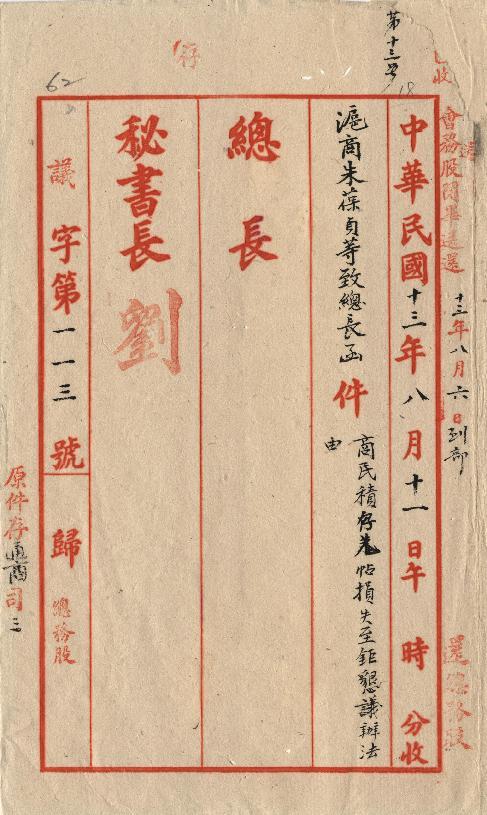 第十三号
存
62
18
收
會務股閱畢送還
十三年八月六日到部
中華民國十三年八月十一日午 時 分收
滬商朱葆貞等致總長函 件
由 商民積存羌帖損失至鉅懇議辦法
總長
秘書長 劉
議字第一一三號
歸 總務股
原件存通商司三